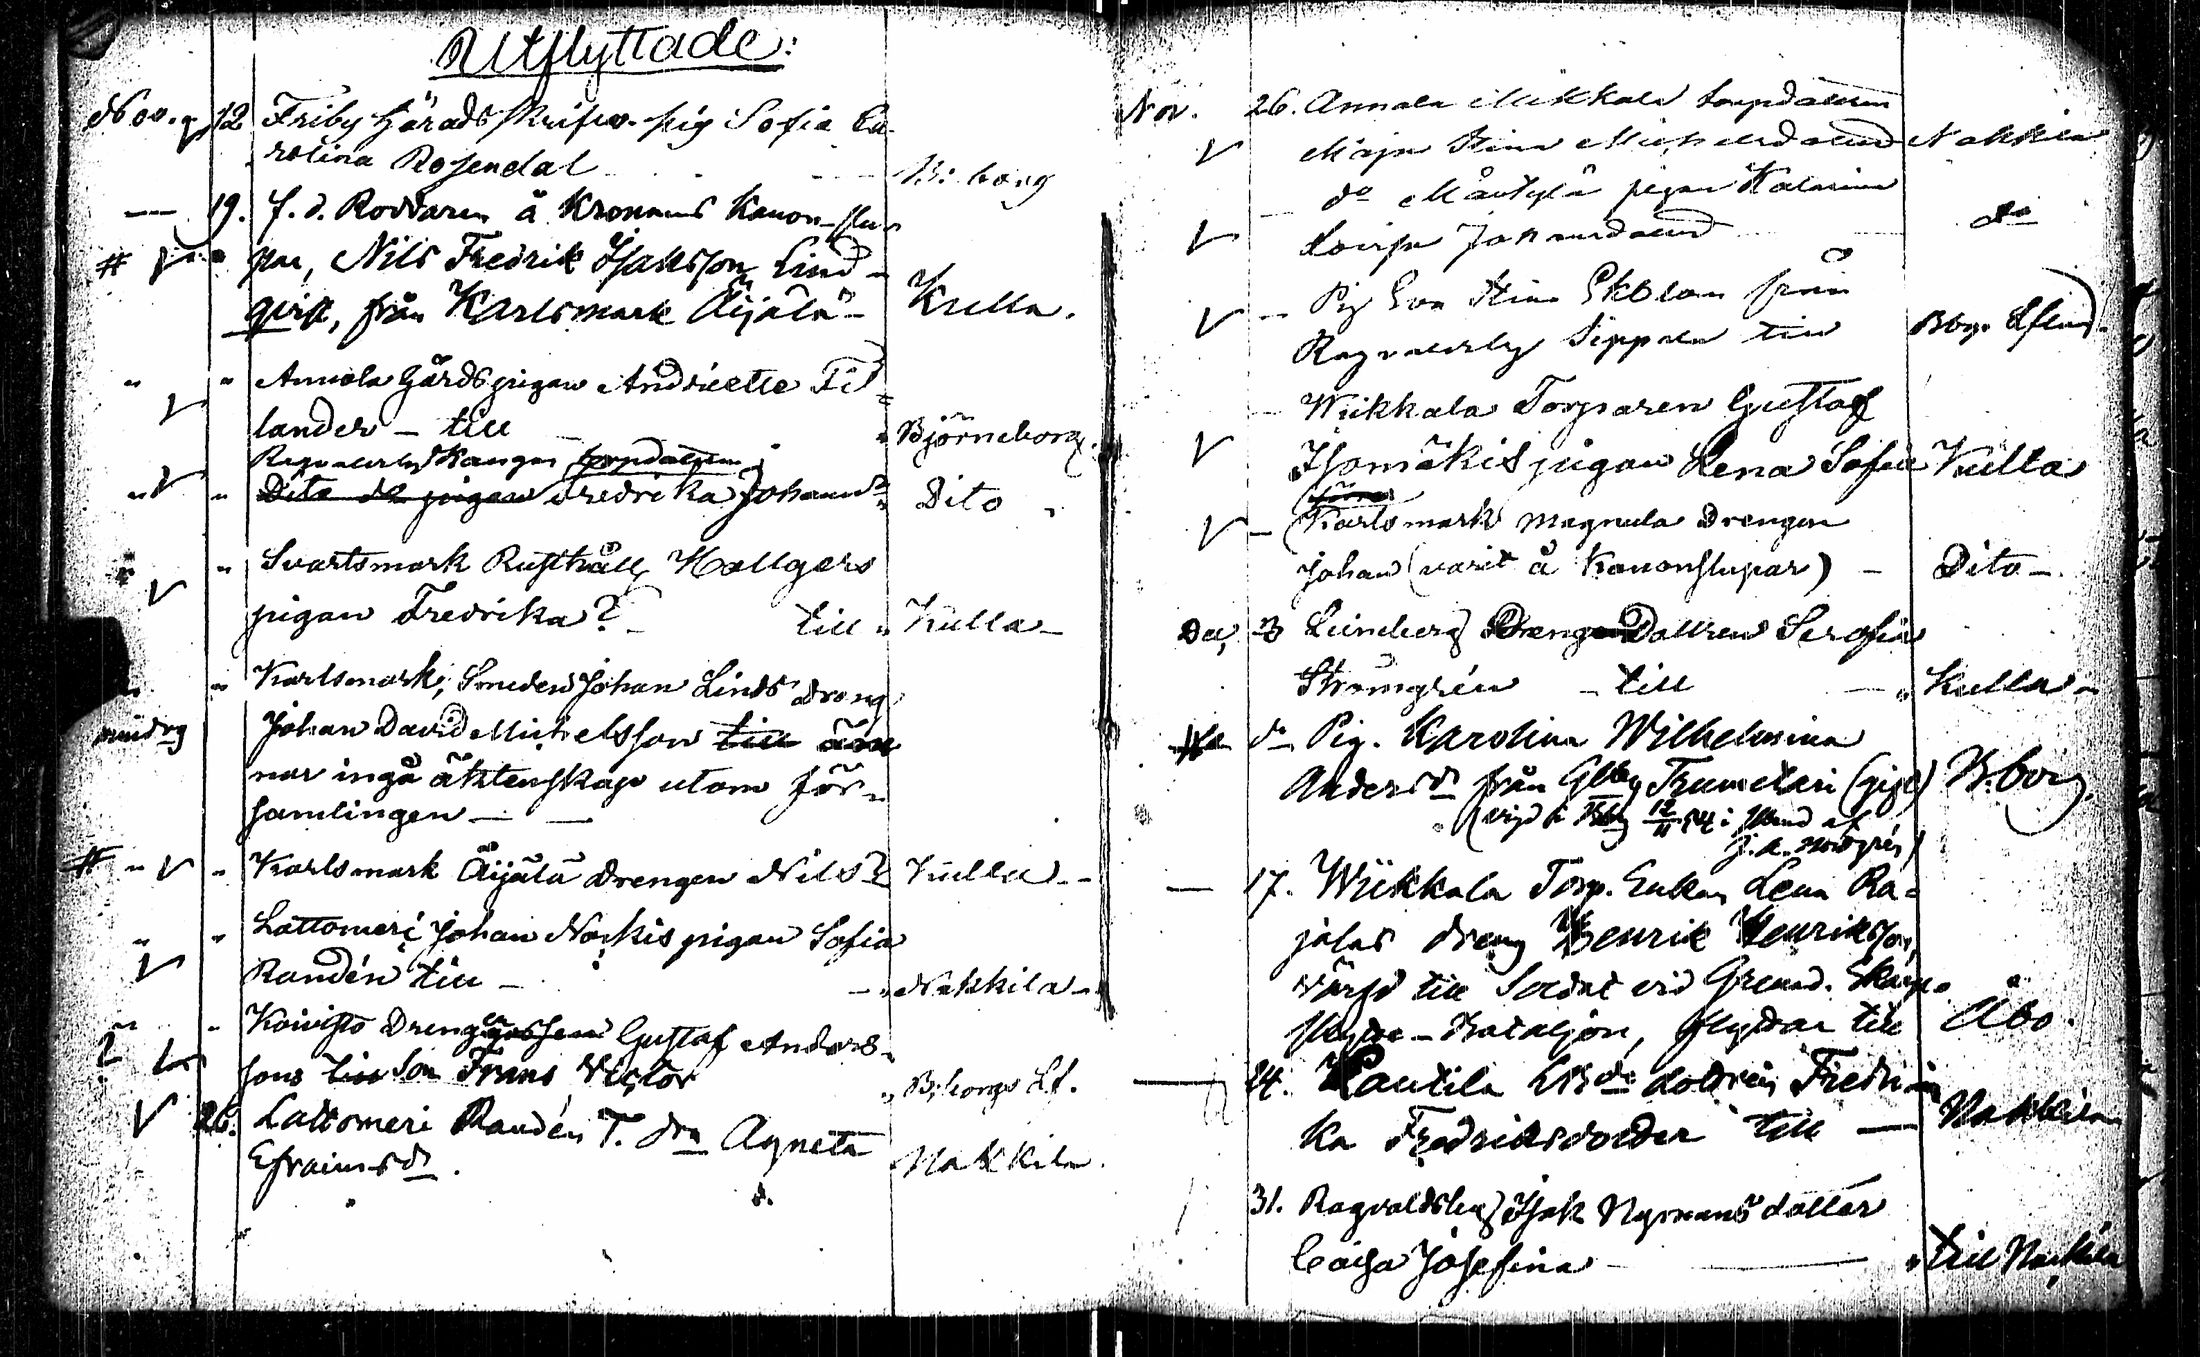 Utflyttade:
Nov. 12 Friby Härads skrifv. pig Sofia Ca-
rolina Rosendal B:borg
— 19. f. d. Roddaren å Kronans Kanon-slu-
par, Nils Fredrik Isaksson Lind-
qvist, från Karlsmark Äijälä - Kulla.
" " Annola Gårds pigan Andriette Fi-
lander - till Björneborg.
Ragvaldsby Kangas torpdottren
" " Dito de pigan Fredrika Johansd Dito
" Svartsmark Rusthåll Hallgers
pigan Fredrika? till " Kulla -
" " Karlsmark, Smeden Johan Linds dreng
Johan David Michelsson till äm
nar ingå äktenskap utom för-
samlingen —
# " " Karlsmark Äijälä Drengen Nils? Kulla -
" " Lattomeri Johan Norkis pigan Sofia
Randén till - - " Nakkila -
" " Koivisto Dreng gossen Gustaf Anders-
sons till Son Frans Victor " B:borgs Lf.
26. Lattomeri Randén T. drn Agneta
Efraimsdr. Nakkila.
Nov. 26. Annala Mikkola torpdottren
Maja Stina Michelsdotter Nakkila
do Mäntylä pigan Katarina
Lovisa Johansdotter do
— Pig Eva Stina Ekblom från
Ragvaldsby Sippola till Bbgs Lförs.
— Wiikkala Torparen Gustaf
Isomäkis pigan Lena Sofia Kulla
— Karlsmark Magnula Drengen
Johan (varit å Kanonslupar) - Dito -
Dec. 3 Leineberg Drengen Dottren Serafia
Strömgrén - till - " Kulla -
do Pig. Karolina Wilhelmina
Andersdr från Gbby Trumetari (gift) B:borg.
(vigd i Bbg 12/11 54 i Stand af
J. A. Nordgrén)
— 17. Wiikkala Torp. Enkan Lena Ra-
jalas dreng Henrik Henriksson,
värfd till Soldat vid Grenad. Skarp-
skytte-Bataljon, flyttar till Åbo.
— 24. Lautila dottren Fredri-
ka Fredriksdotter till — Nakkila
31. Ragvaldsby Isak Nymans dotter
Caisa Josefina — " till Nakkila